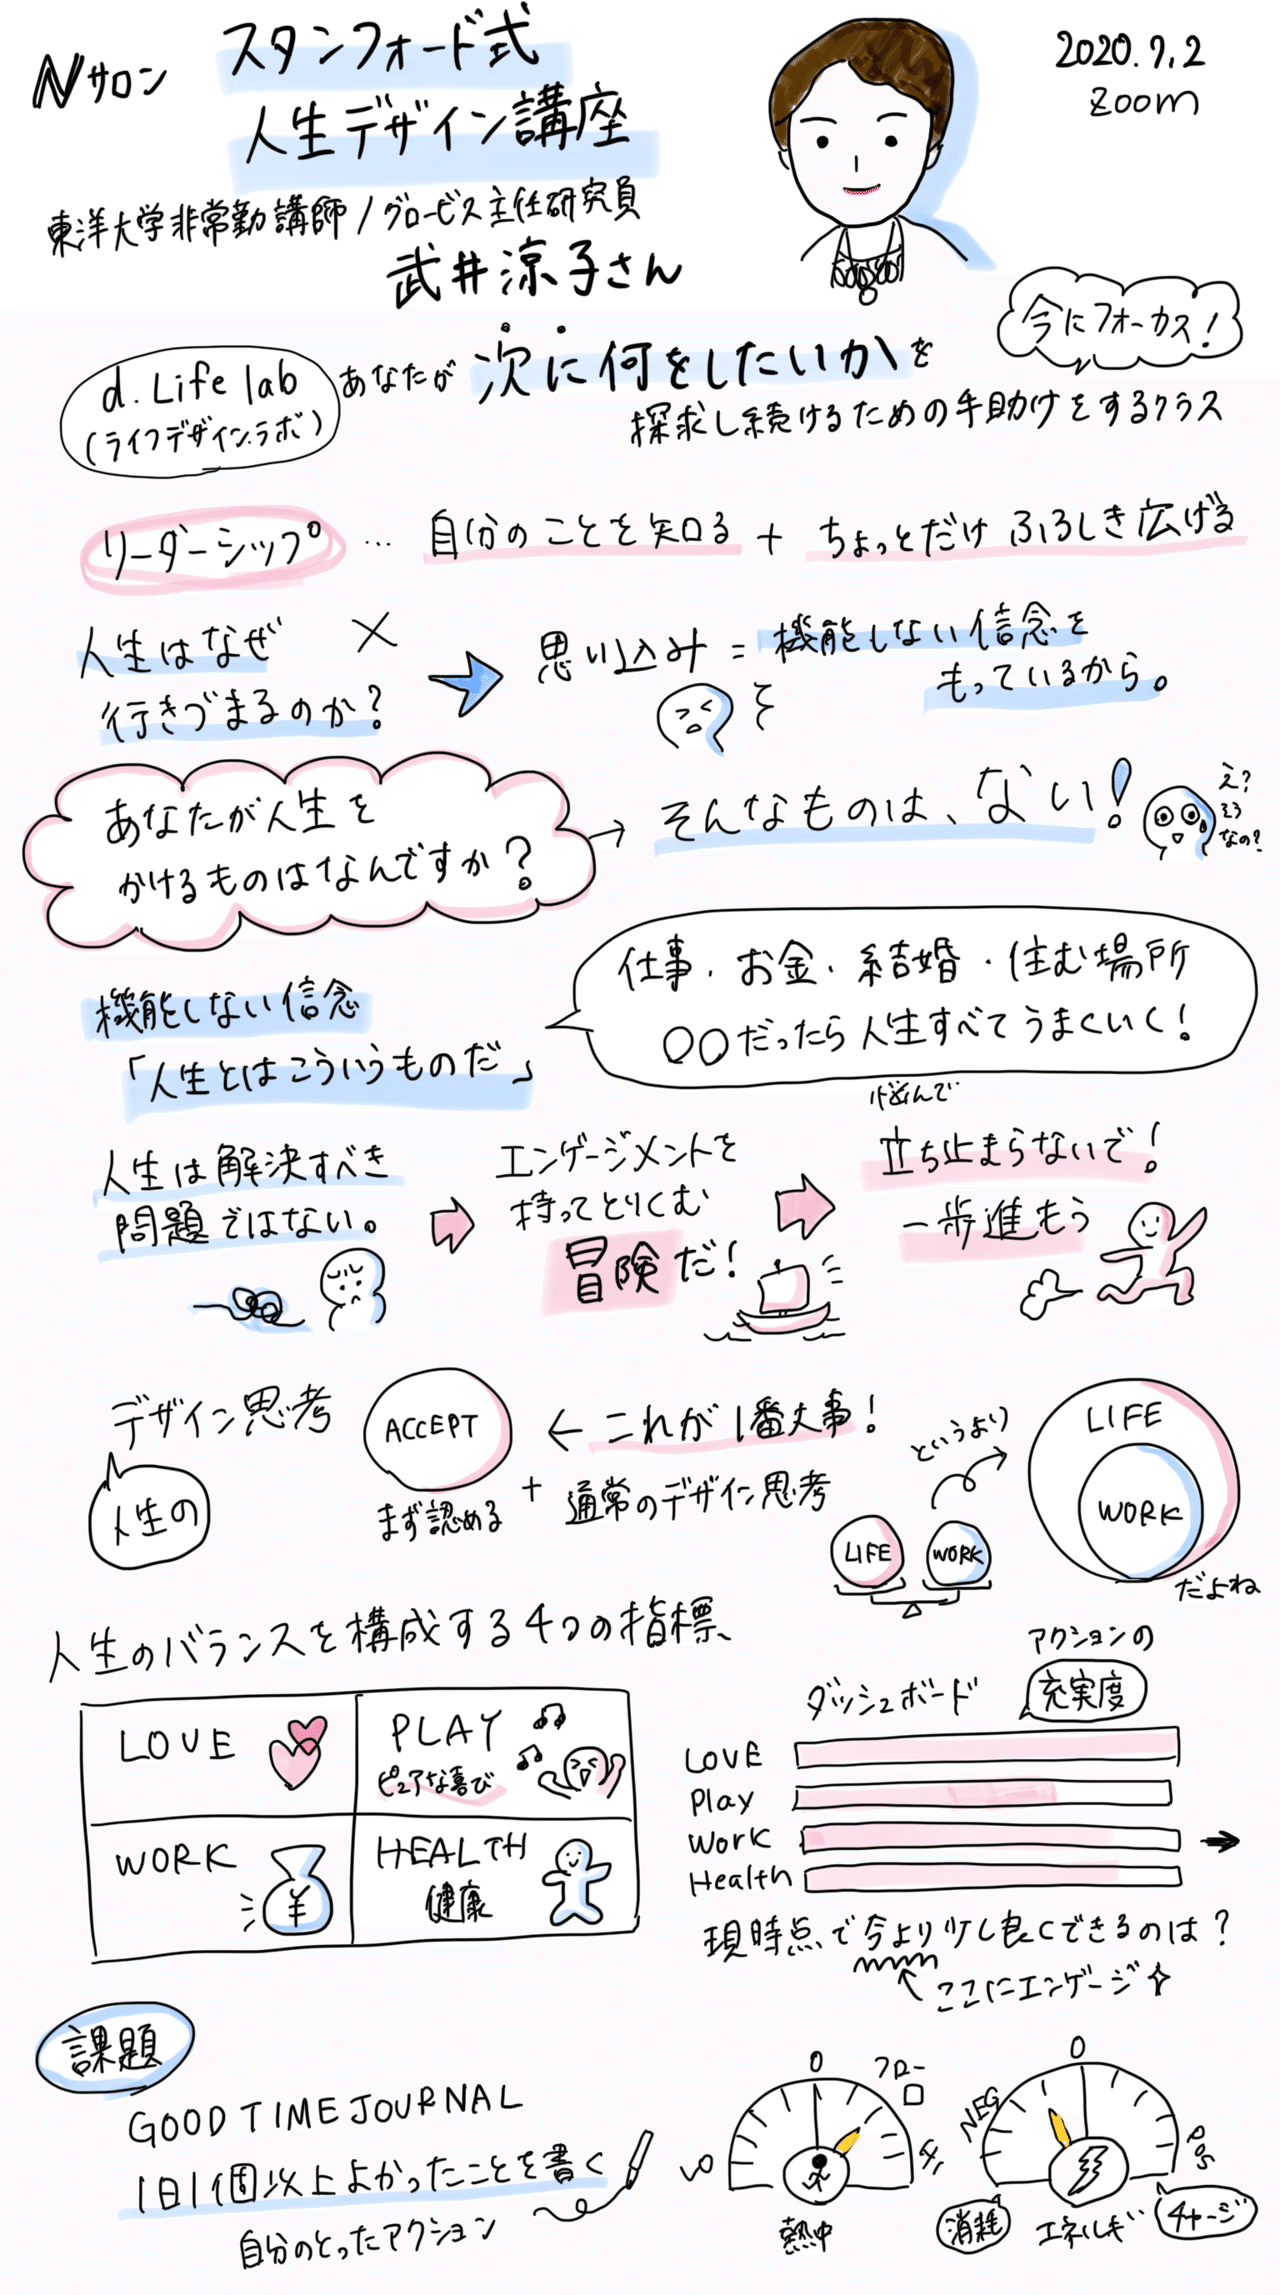 Nサロン
スタンフォード式
人生デザイン講座
2020.7.2
zoom
東洋大学非常勤講師/グロービス主任研究員
武井涼子さん
今にフォーカス!
d. Life lab
(ライフデザインラボ)
あなたが次に何をしたいかを
探求し続けるための手助けをするクラス
リーダーシップ … 自分のことを知る + ちょっとだけふろしき広げる
人生はなぜ
行きづまるのか?
思い込み = 機能しない信念を
もっているから。
あなたが人生を
かけるものはなんですか?
→ そんなものは、ない!
え?
そう
なの?
機能しない信念
「人生とはこういうものだ」
仕事・お金・結婚・住む場所
○○だったら人生すべてうまくいく!
人生は解決すべき
問題ではない。
エンゲージメントを
持ってとりくむ
冒険だ!
悩んで
立ち止まらないで!
一歩進もう
デザイン思考
人生の
ACCEPT
まず認める
← これが1番大事!
+ 通常のデザイン思考
というより
LIFE
WORK
LIFE
WORK
だよね
人生のバランスを構成する4つの指標
LOVE
PLAY
ピュアな喜び
WORK
¥
HEALTH
健康
ダッシュボード
アクションの
充実度
LOVE
Play
Work
Health
現時点で今より少し良くできるのは?
ここにエンゲージ
課題
GOOD TIME JOURNAL
1日1個以上よかったことを書く
自分のとったアクション
0
フロー
Lo
Hi
熱中
0
NEG
POS
消耗
エネルギー
チャージ